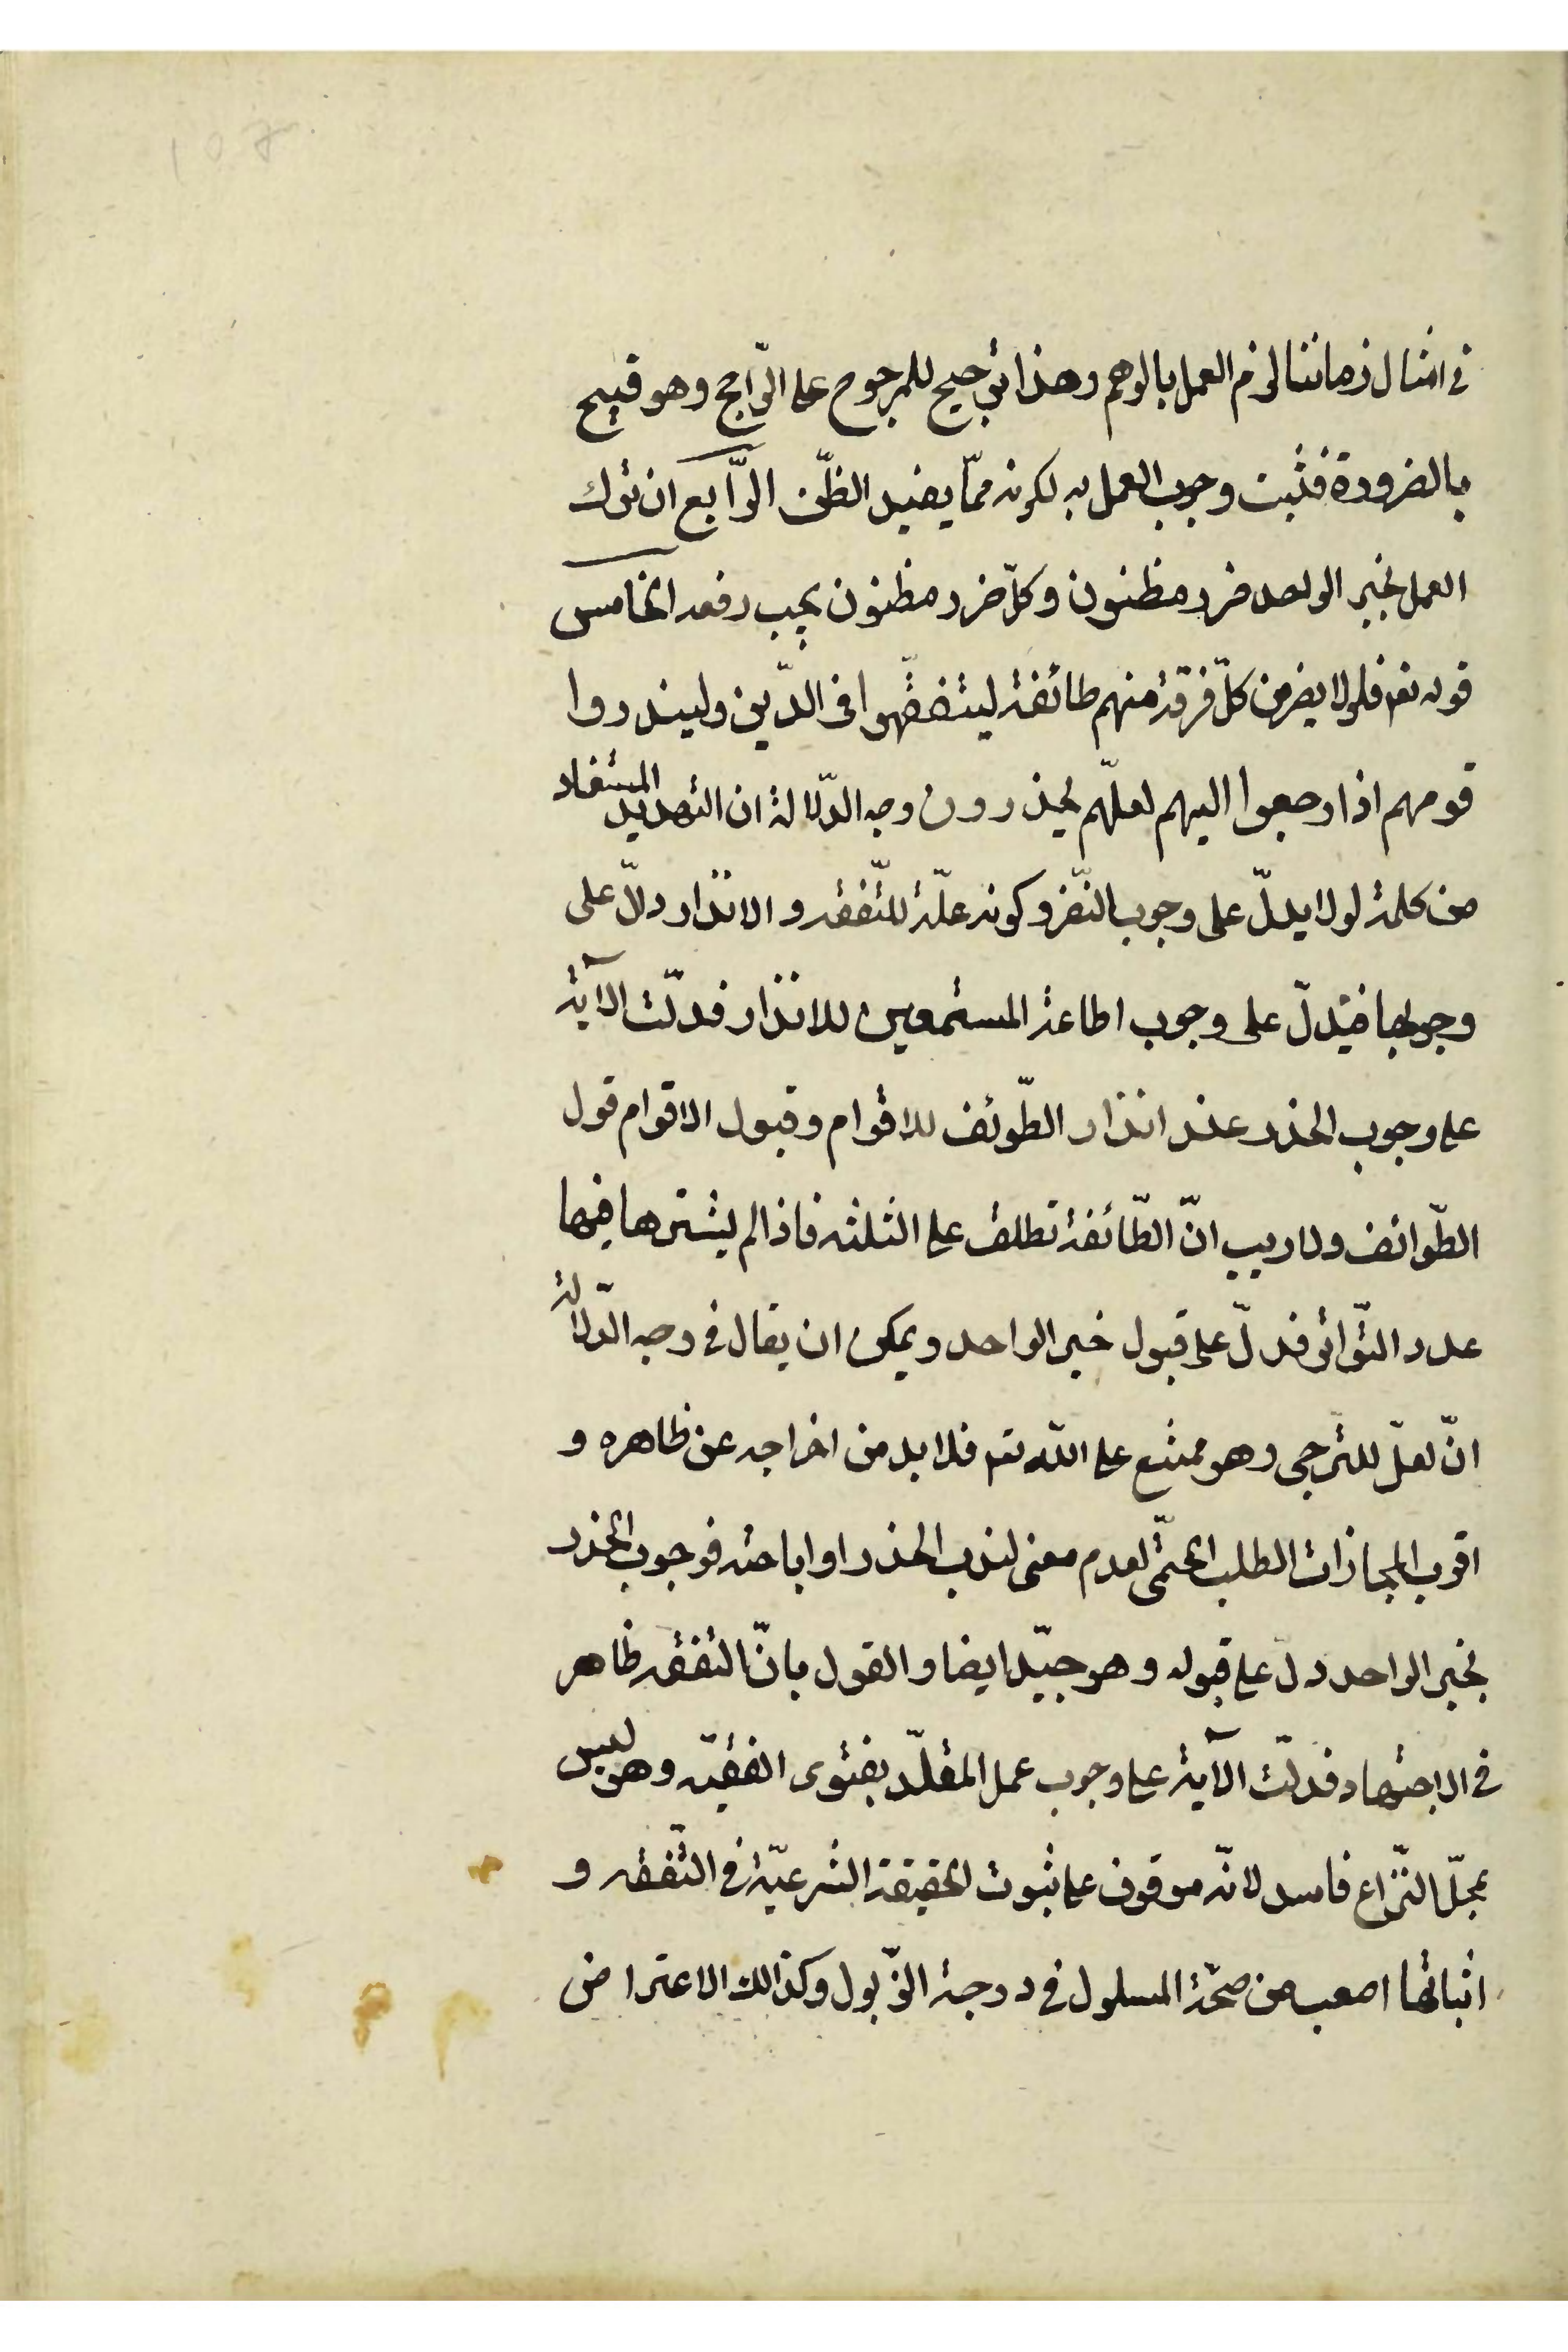 في امثال زماننا لزم العمل بالوهم وهذا ترجيح للمرجوح على الرّاجح وهو قبيح
بالضرورة فثبت وجوب العمل به لكونه ممّا يفيد الظّن الرّابع ان ترك
العمل بخبر الواحد ضرر مظنون وكلّ ضرر مظنون يجب دفعه الخامس
قوله تعه فلولا نفر من كلّ فرقة منهم طائفة ليتفقّهوا في الدّين ولينذروا
قومهم اذا رجعوا اليهم لعلّهم يحذرون وجه الدّلالة ان التهديد المستفاد
من كلمة لولا يدلّ على وجوب النّفر وكونه علّة للتّفقه والانذار دلّ على
وجوبهما فيدلّ على وجوب اطاعة المستمعين للانذار فدلّت الآية
على وجوب الحذر عند انذار الطّوئف للاقوام وقبول الاقوام قول
الطّوائف ولا ريب انّ الطّائفة تطلق على الثلثة فاذا لم يشترط فيها
عدد التّواتر فدلّ على قبول خبر الواحد ويمكن ان يقال في وجه الدّلالة
انّ لعلّ للترّجي وهو ممتنع على اللّه تعه فلا بد من اخراجه عن ظاهره و
اقرب المجازات الطلب الحتمّى لعدم معنى لندب الحذر او اباحته فوجوب الحذر
بخبر الواحد دلّ على قبوله وهو جيّد ايضا والقول بانّ التفقه ظاهر
في الاجتهاد فدلّت الآية على وجوب عمل المقلّد بفتوى الفقيه وهو ليس
بمحلّ النّزاع فاسد لانّه موقوف على ثبوت الحقيقة الشرعيّة في التّفقه و
اثباتها اصعب من صحّة المسلول في درجة الذّبول وكذالك الاعتراض